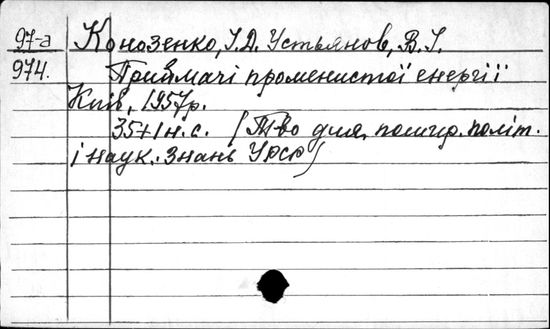 97-а Конозенко, І.Д. Устьянов, В.І.
974. Приймачі променистої енергії
Київ, 1957р.
35+1н.с. (Т-во для пошир. політ.
і наук. знань УРСР)